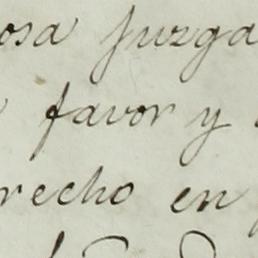 osa juzga
favor y
recho en